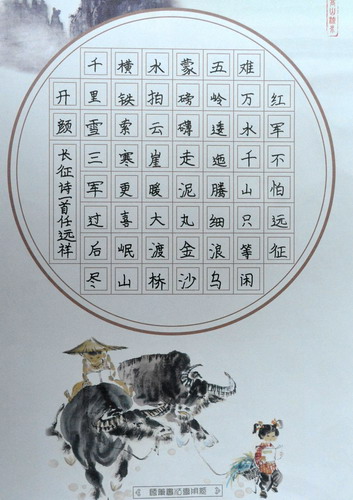 红军不怕远征
难万水千山只等闲
五岭逶迤腾细浪乌
蒙磅礴走泥丸金沙
水拍云崖暖大渡桥
横铁索寒更喜岷山
千里雪三军过后尽
开颜
长征诗一首任远祥